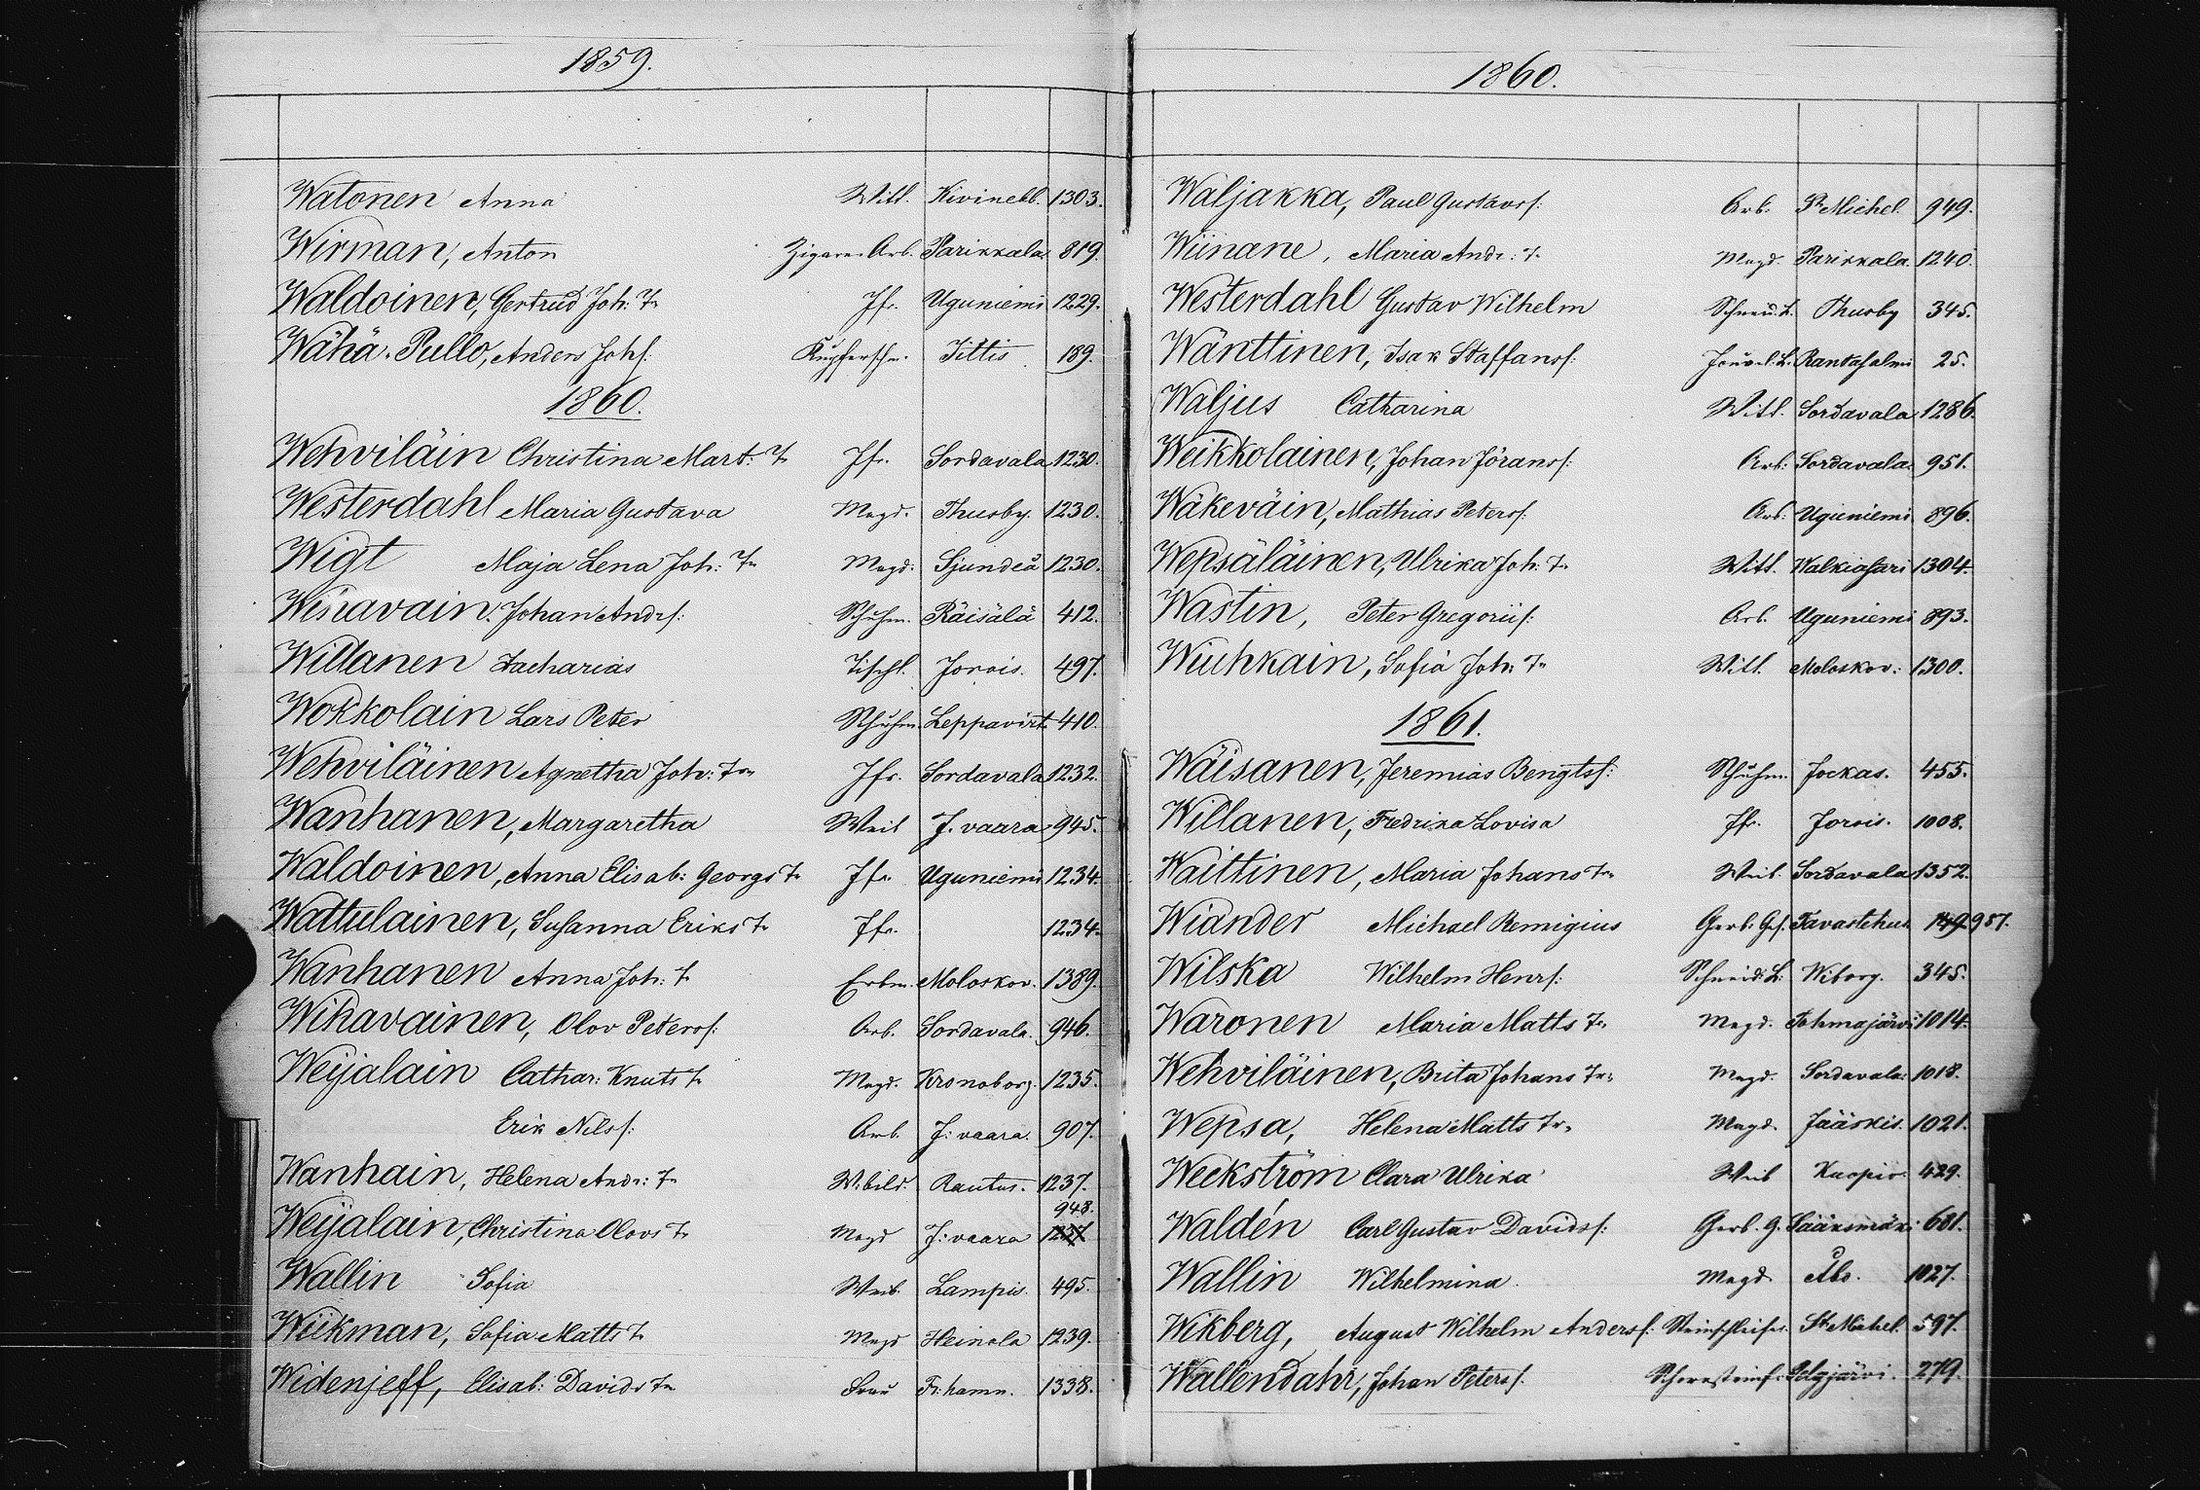 1859.
Watonen Anna Witt. Kivineb. 1303.
Wirman, Anton Zigarren Arb. Parikkala 819.
Waldoinen, Gertrud Joh: Tr Jfr. Uguniemi 1229.
Wähä-Pullo, Anders Johs: Kupfersch. Jittis 189.
1860.
Wehviläin Christina Mart: Tr Jfr. Sordavala 1230.
Westerdahl Maria Gustava Magd. Thusby. 1230.
Wigt Maja Lena Joh: Tr Magd: Sjundeå 1230.
Johan Andrs: Schuhm. Räisälä 412.
Willanen Zacharias Tischl. Jorois. 497.
Wokkolain Lars Peter Schuhm. Leppävirt 410.
Wehviläinen Agnetha Joh: Tr Jfr. Sordavala 1232.
Wanhanen, Margaretha Weib J. vaara 945.
Waldoinen, Anna Elisab: Georgs Tr Jfr. Uguniemi 1234.
Wattulainen, Susanna Eriks Tr Jfr. 1234.
Wanhanen Anna Joh: Tr Erbm. Moloskov. 1389.
Wihavainen, Olov Peters: Arb. Sordavala. 946.
Weijalain Cathar: Knuts Tr Magd. Kronoborg. 1235.
Erik Nilss: Arb. J: vaara. 907.
Wanhain, Helena Andr: Tr W:bild. Rautus. 1237.
948.
Weijalain, Christina Olovs Tr Magd J: vaara
Wallin Sofia Weib. Lampis. 495.
Wiikman, Sofia Matts Tr Magd Heinola 1239.
Widenjeff, Elisab: Davids Tr Frau Fr.hamn. 1338.
1860.
Waljakka, Paul Gustavs: Arb. St Michel. 949.
Wiinane, Maria Andr: Tr Magd. Parikkala. 1240.
Westerdahl Gustav Wilhelm Schneid. L. Thusby 345.
Wänttinen, Isak Staffans: Juvel. L. Rantasalmi 25.
Waljus Catharina Witt. Sordavala 1286.
Weikkolainen, Johan Jörans: Arb: Sordavala. 951.
Wäkeväin, Mathias Peters: Arb: Uguniemi 896.
Wepsäläinen, Ulrika Joh: Tr Witt. Walkiasari 1304.
Wastin, Peter Gregoriis: Arb. Uguniemi 893.
Wiuhkain, Sofia Joh: Tr Witt. Moloskov: 1300.
1861.
Wäisanen, Jeremias Bengts: Schuhm. Jockas. 455.
Willanen, Fredrika Lovisa Jfr. Jorois. 1008.
Waittinen, Maria Johans Tr Weib. Sordavala 1352.
Wiander Michael Remigius Gerb: Ges. Tavastehus 149 987.
Wilska Wilhelm Henrs: Schneid: L: Wiborg. 345.
Waronen Maria Matts Tr Magd. Tohmajärvi 1014.
Wehviläinen, Brita Johans Tr: Magd. Sordavala: 1018.
Wepsa, Helena Matts Tr. Magd. Jääskis. 1021.
Weckström Clara Ulrika Weib Kuopio. 429.
Waldén Carl Gustav Davids: Gerb. G. Sääksmäk: 681.
Wallin Wilhelmina. Magd. Åbo. 1027.
Wikberg, August Wilhelm Anders: Steinschleifer. St Michel. 597.
Wallendahr, Johan Peters: Schornsteinf: Pelgjärvi. 279.